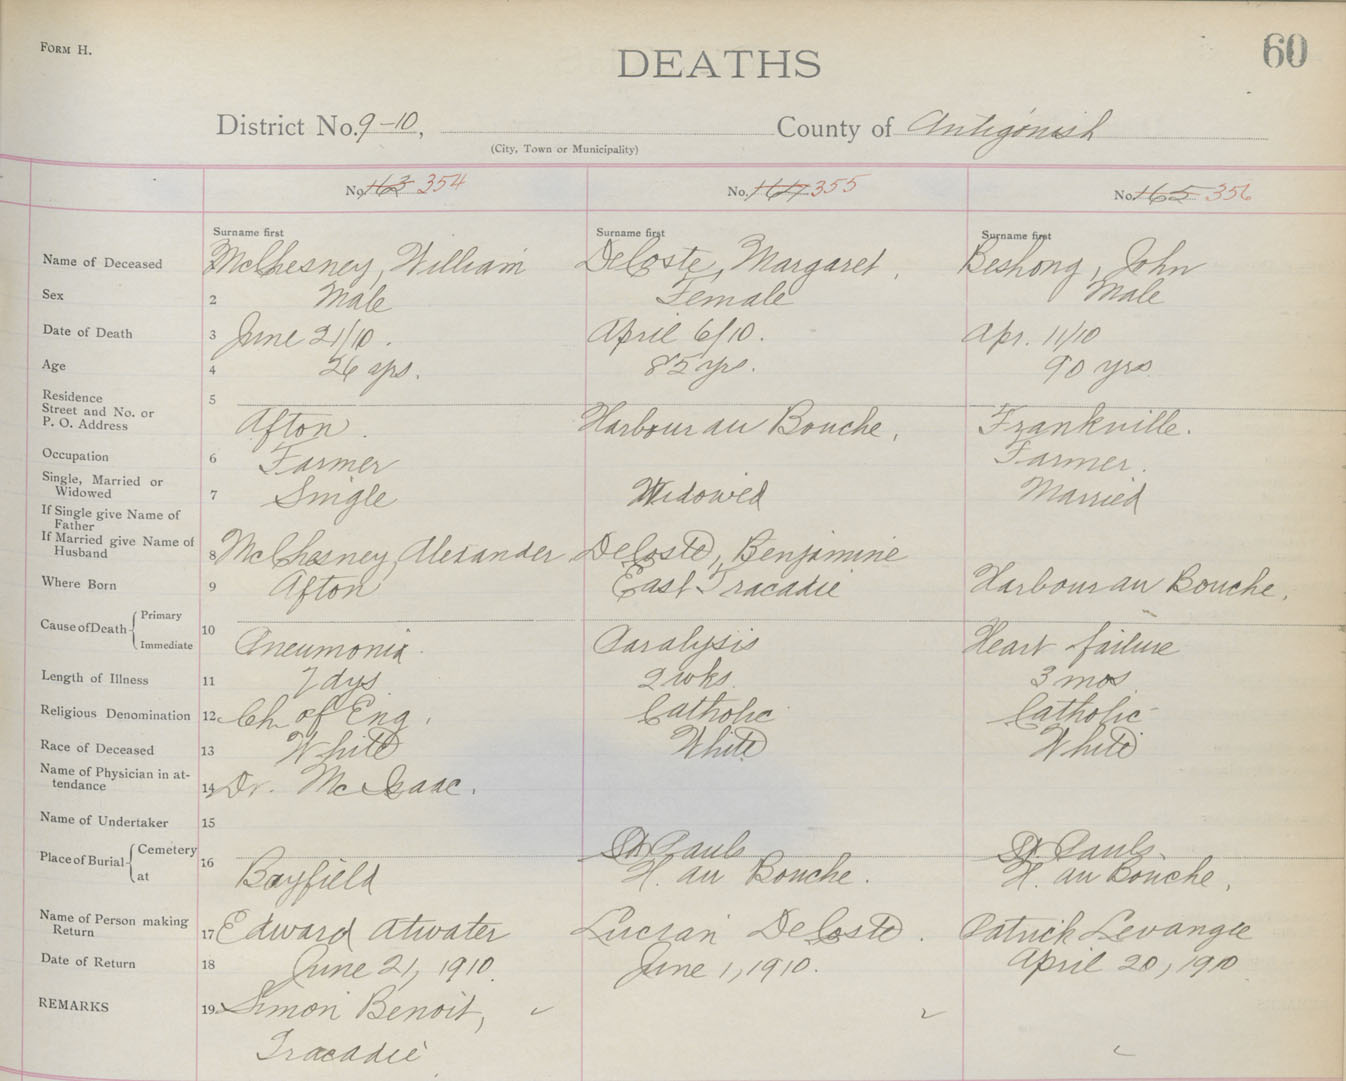 FORM H.
60
DEATHS
District No. 9-10, County of Antigonish
(City, Town or Municipality)
No. 163 354 No. 164 355 No. 165 356
Surname first Surname first Surname first
Name of Deceased McChesney, William DeCoste, Margaret, Beshong, John
Sex 2 Male Female Male
Date of Death 3 June 21/10. April 6/10. Apr. 11/10
Age 4 26 yrs. 85 yrs. 90 yrs.
Residence 5
Street and No. or
P. O. Address Afton. Harbour au Bouche, Frankville.
Occupation 6 Farmer Farmer.
Single, Married or
Widowed 7 Single Widowed Married
If Single give Name of
Father
If Married give Name of
Husband 8 McChesney, Alexander DeCoste, Benjamine
Where Born 9 Afton East Tracadie Harbour au Bouche,
Cause of Death Primary
Immediate 10 Pneumonia. Paralysis Heart failure
Length of Illness 11 7 dys. 2 wks. 3 mos.
Religious Denomination 12 Ch. of Eng. Catholic Catholic
Race of Deceased 13 White White White
Name of Physician in at-
tendance 14 Dr. McIsaac.
Name of Undertaker 15
Place of Burial Cemetery 16 St Pauls St. Pauls
at Bayfield H. au Bouche. H. au Bouche,
Name of Person making
Return 17 Edward Atwater Lucian DeCoste. Patrick Levangie
Date of Return 18 June 21, 1910. June 1, 1910. April 20, 1910
REMARKS 19 Simon Benoit,
Tracadie